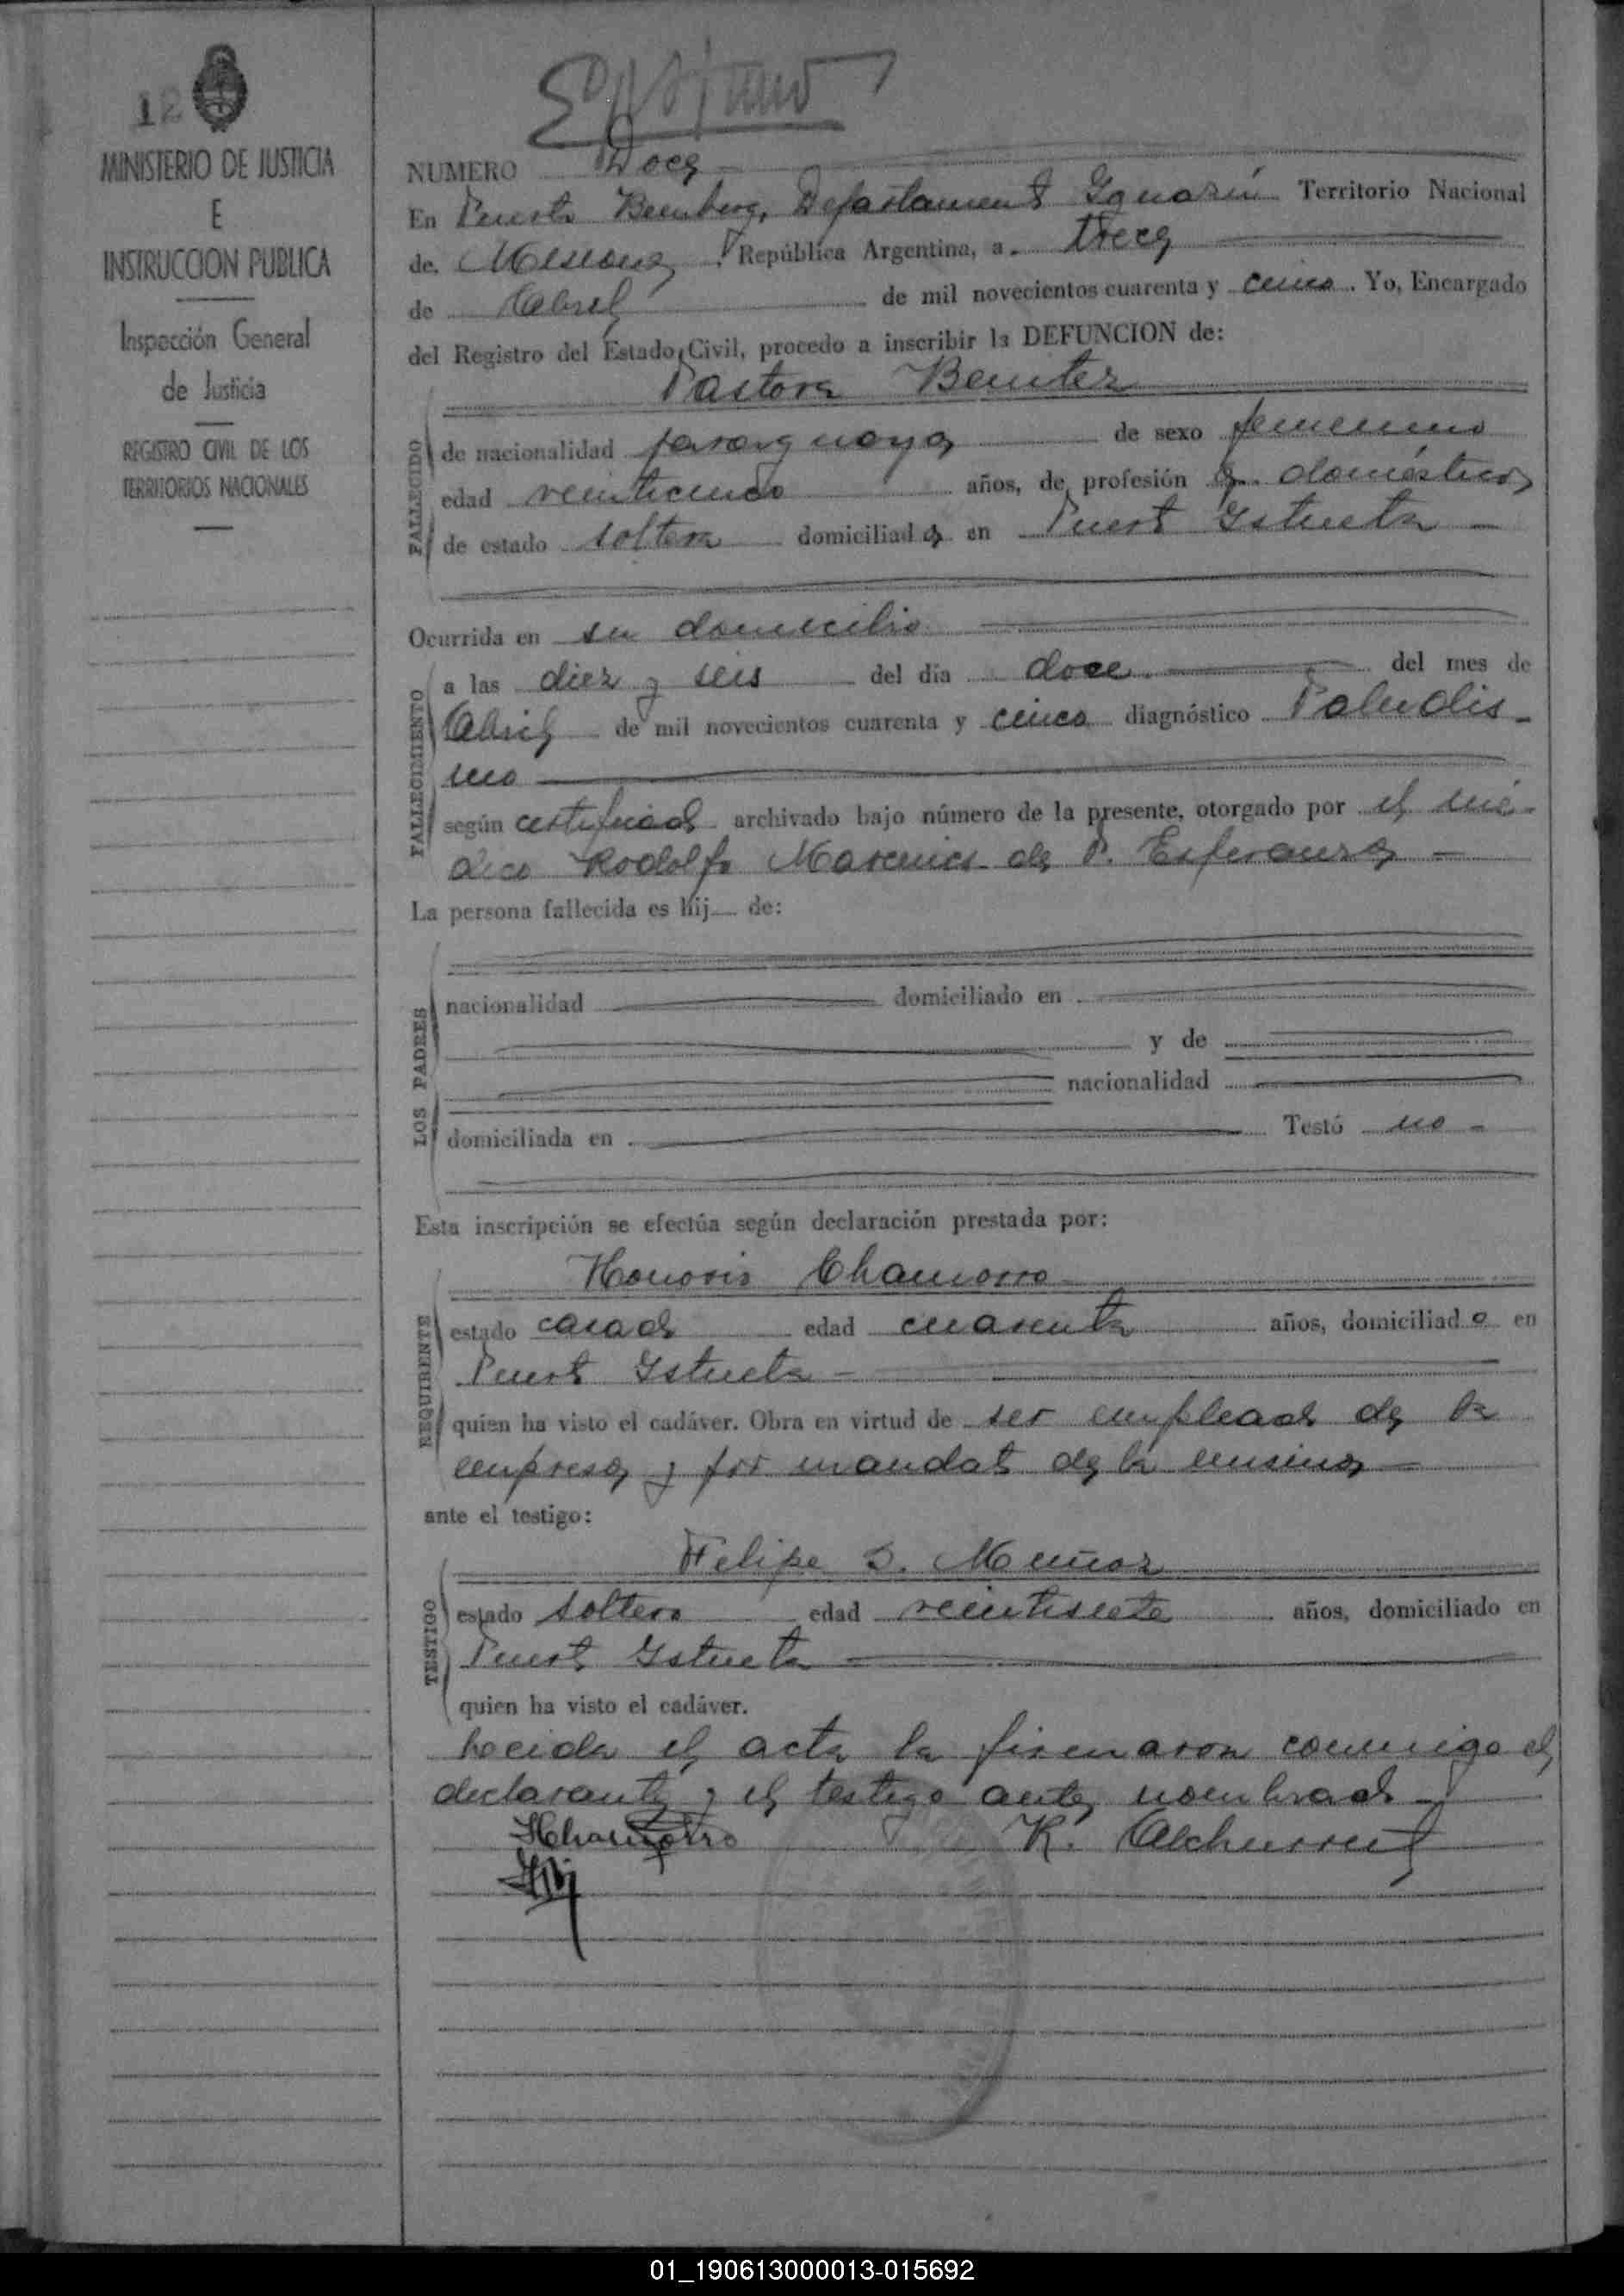 12
MINISTERIO DE JUSTICIA
E
INSTRUCCION PUBLICA
Inspección General
de Justicia
REGISTRO CIVIL DE LOS
TERRITORIOS NACIONALES
NUMERO Doce
En Puerto Bemberg, Departamento Iguazú Territorio Nacional
de Misiones, República Argentina, a trece
de Abril de mil novecientos cuarenta y cinco. Yo, Encargado
del Registro del Estado Civil, procedo a inscribir la DEFUNCION de:
Pastora Benitez
FALLECIDO
de nacionalidad paraguaya de sexo femenino
edad veinticinco años, de profesión q. domésticos
de estado soltera domiciliada en Puerto Istueta
Ocurrida en su domicilio
FALLECIMIENTO
a las diez y seis del día doce del mes de
Abril de mil novecientos cuarenta y cinco diagnóstico Paludis-
mo
según certificado archivado bajo número de la presente, otorgado por el mé-
dico Rodolfo de P. Esperanza
La persona fallecida es hij de:
LOS PADRES
nacionalidad domiciliado en
y de
nacionalidad
domiciliada en Testó no
Esta inscripción se efectúa según declaración prestada por:
Honorio Chamorro
REQUIRENTE
estado casado edad cuarenta años, domiciliado en
Puerto Istueta
quien ha visto el cadáver. Obra en virtud de ser empleado de la
empresa y por mandato de la misma
ante el testigo:
Felipe S. Muñoz
TESTIGO
estado soltero edad veintisiete años, domiciliado en
Puerto Istueta
quien ha visto el cadáver.
Leida el acta la firmaron conmigo el
declarante y el testigo antes nombrado
HChamorro R.
01_190613000013-015692